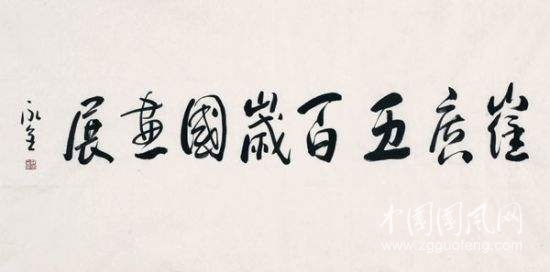 崔廣五百歲國畫展
永金
中国國风网
www.zgguofeng.com